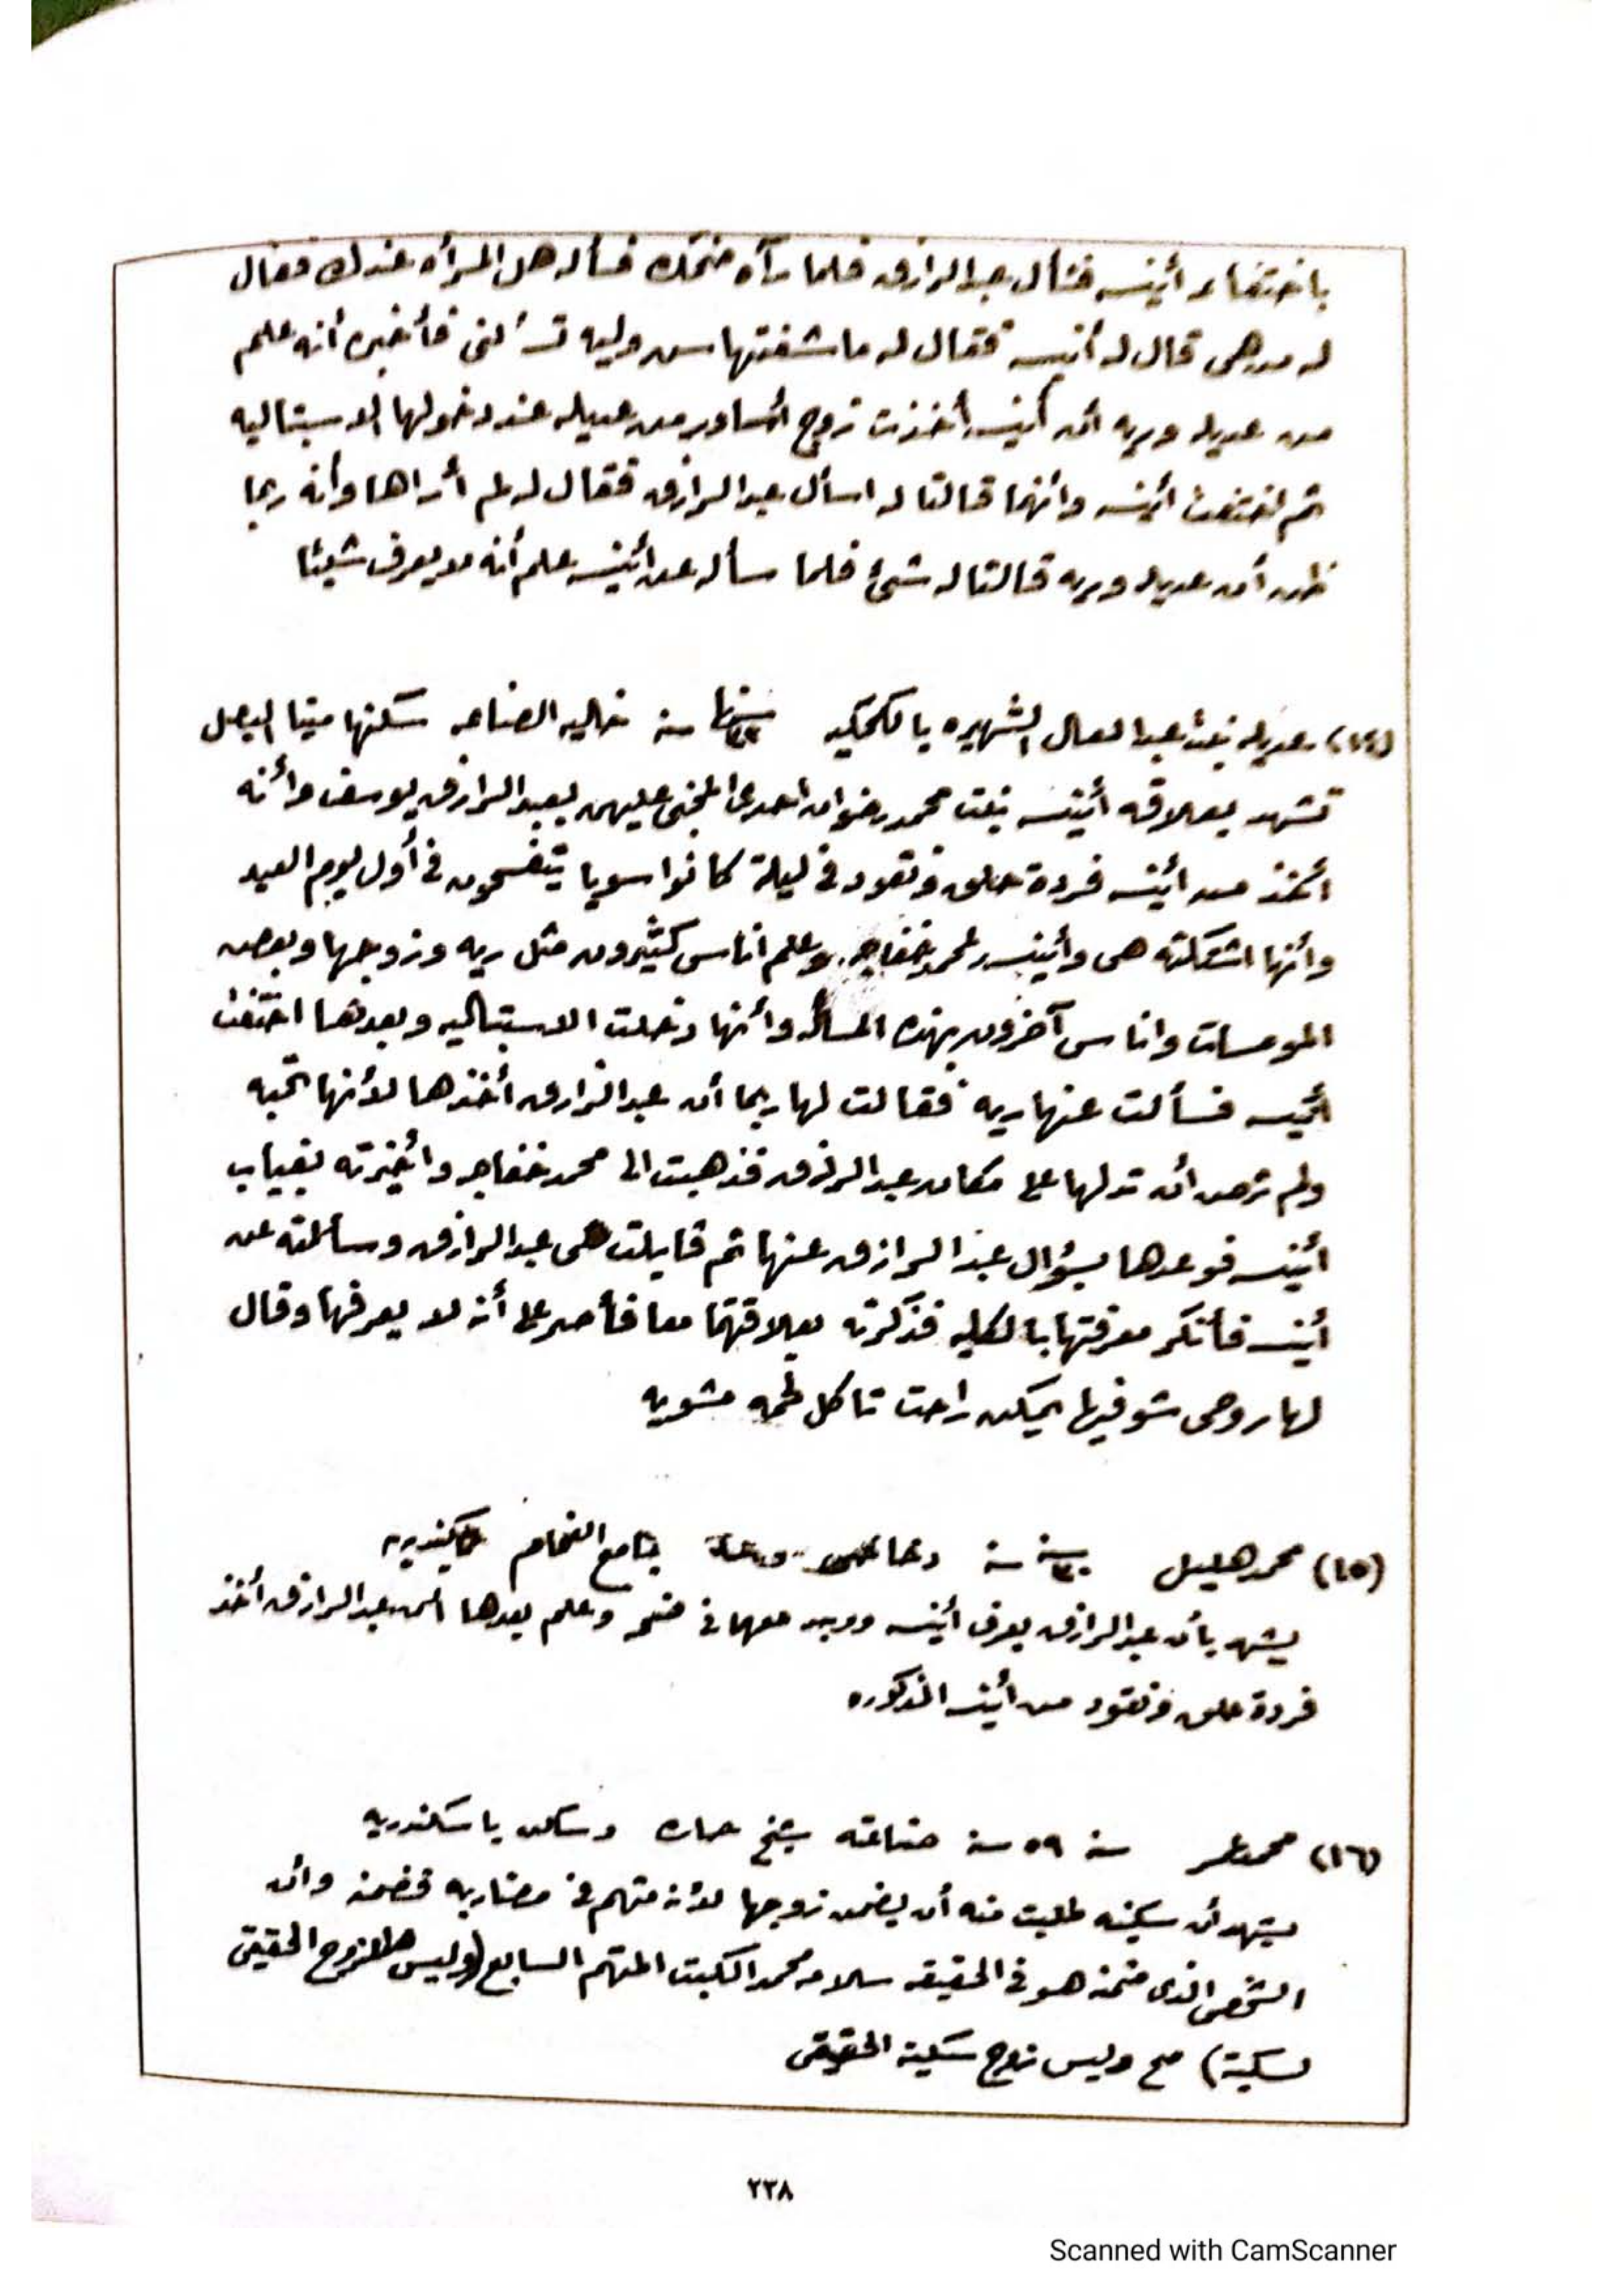 باختفاء أنيسه فسأل عبد الرازق فلما رآه ضحك فسأله هل المرأه عندك فقال
له من هى قال له أنيسه فقال له ما شفتهاس وليه تسألنى فأخبره أنه علم
من عديله وريه أن أنيسه أخذت زوج أساور من عديله عند دخولها الاسبتاليه
ثم اختفت أنيسه وانهما قالتا له اسأل عبد الرازق فقال له لم أراها وأنه ربما
ظن أن عديله وريه قالتا له شئ فلما سأله عن أنيسه علم أنه لا يعرف شيئا
(١٤) عديله بنت عبد العال الشهيره بالكحكيه سنها ٢٣ سنة خاليه الصناعه سكنها مينا البصل
تشهد بعلاقه أنيسه بنت محمد رضوان احدى المجنى عليهن بعبد الرازق يوسف وأنه
أخذ من أنيسه فردة حلق ونقود فى ليلة كانوا سويا يتفسحون فى أول يوم العيد
وأنها اشتكته هى وأنيسه لمحمد خفاجه وعلم اناس كثيرون مثل ريه وزوجها وبعض
المومسات واناس آخرون بهذه المسأله وأنها دخلت الاسبتاليه وبعدها اختفت
أنيسه فسألت عنها ريه فقالت لها ربما أن عبد الرازق أخذها لأنها تحبه
ولم ترض أن تدلها على مكان عبد الرازق فذهبت الى محمد خفاجه وأخبرته بغياب
أنيسه فوعدها بسؤال عبد الرازق عنها ثم قابلت هى عبد الرازق وسألته عن
أنيسه فأنكر معرفتها بالكليه فذكرته بعلاقتهما معا فأصر على أنه لا يعرفها وقال
لها روحى شوفيها يمكن راحت تاكل لحمه مشويه
(١٥) محمد هليل سنه ٣٠ سنة بجامع الفحام باسكندريه
يشهد بأن عبد الرازق يعرف أنيسه ووجد معها فى وعلم بعدها أن عبد الرازق أخذ
فردة حلق ونقود من أنيسه المذكوره
(١٦) محمد عمر سنه ٥٩ سنة صناعته شيخ حاره وسكن باسكندريه
يشهد أن سكينه طلبت منه أن يضمن زوجها لأنه متهم فى مضاربه فضمنه وأن
الشخص الذى ضمنه هو فى الحقيقه سلامه محمد الكبت المتهم السابع (وليس الزوج الحقيقى
لسكينة) صح وليس زوج سكينة الحقيقى
٢٣٨
Scanned with CamScanner